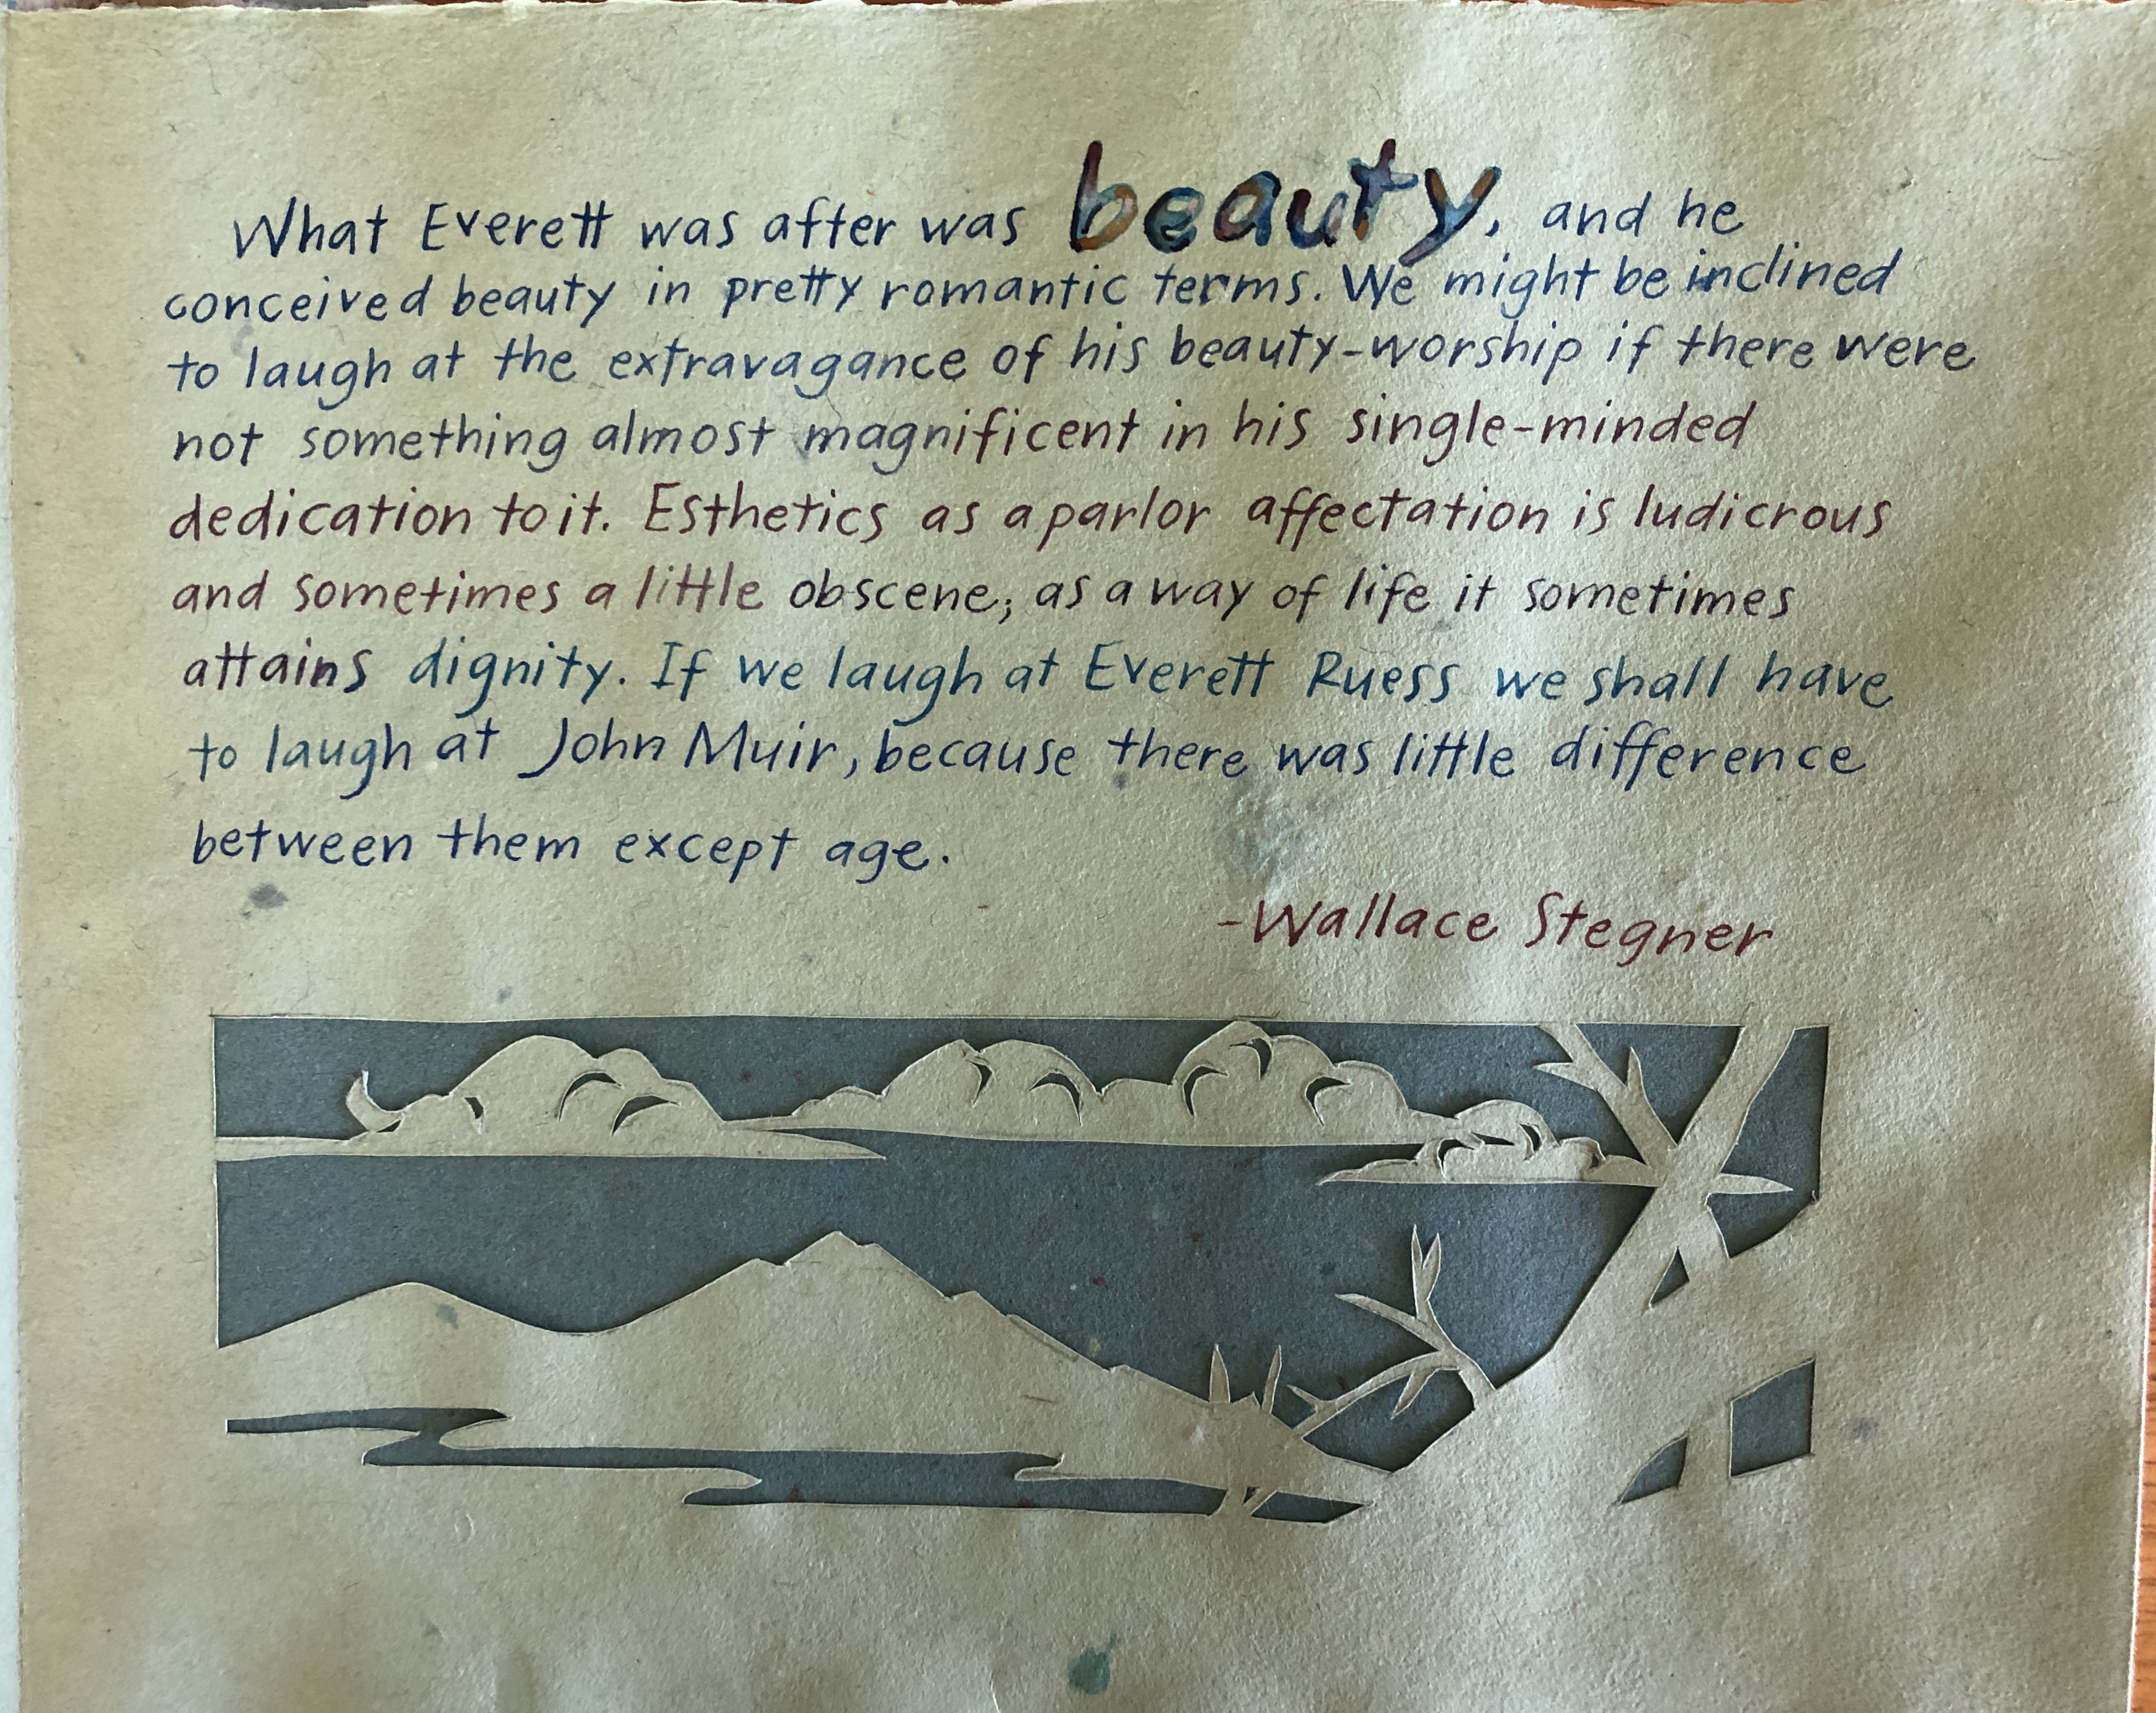 What Everett was after was beauty, and he
conceived beauty in pretty romantic terms. We might be inclined
to laugh at the extravagance of his beauty-worship if there were
not something almost magnificent in his single-minded
dedication to it. Esthetics as a parlor affectation is ludicrous
and sometimes a little obscene; as a way of life it sometimes
attains dignity. If we laugh at Everett Ruess we shall have
to laugh at John Muir, because there was little difference
between them except age.
-Wallace Stegner